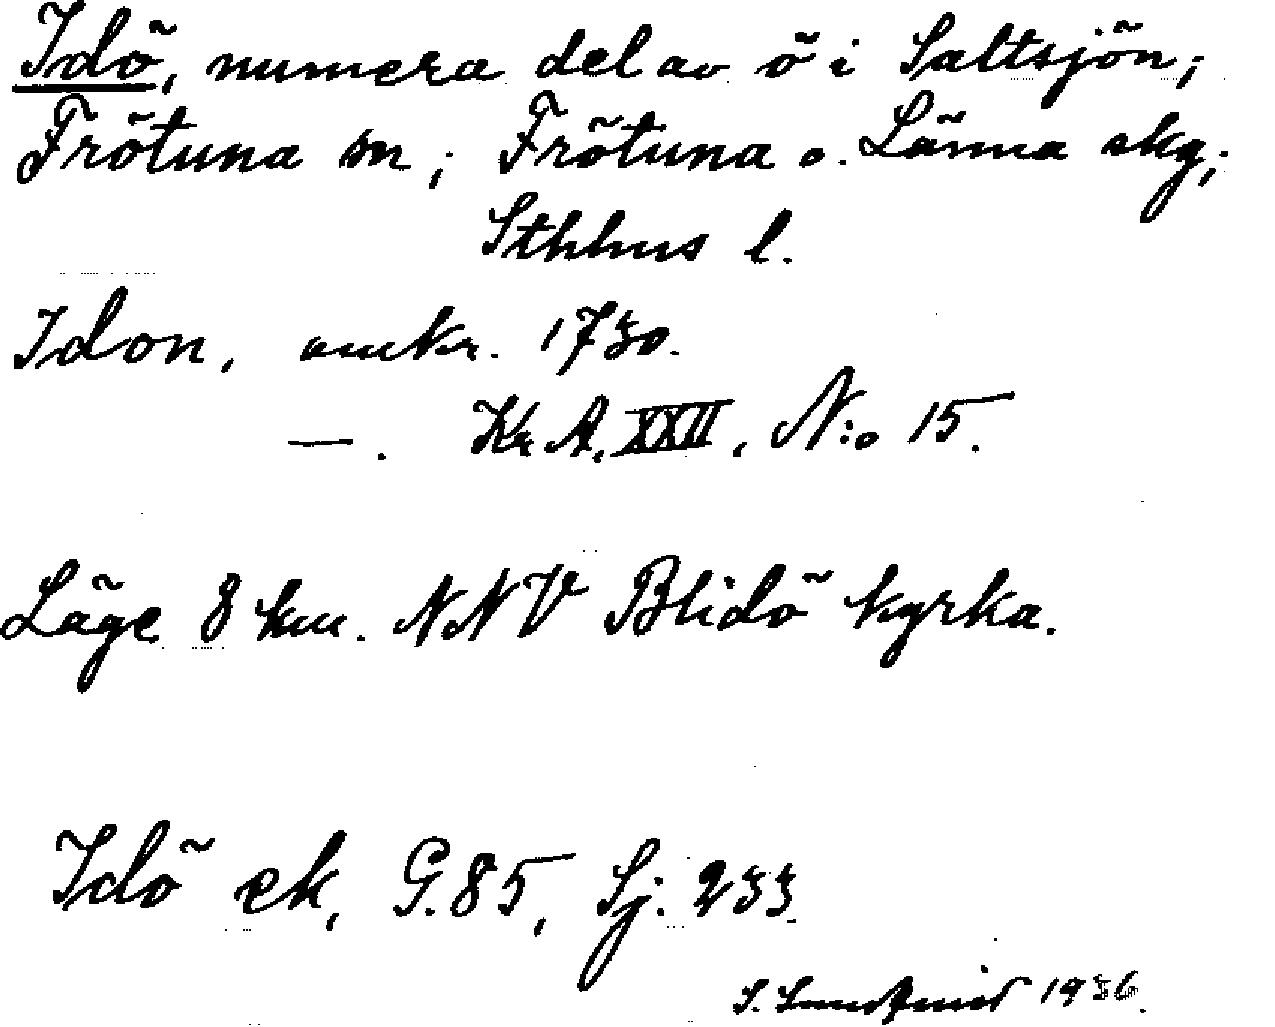 Idö, numera del av ö i Saltsjön;
Frötuna sn; Frötuna o. Länna skg;
Sthlms l.
Idon, omkr. 1730.
—. Kr A, XXII, N:o 15.
Läge 8 km. NNV Blidö kyrka.
Idö ek, G. 85, Sj: 233
S. 1936.